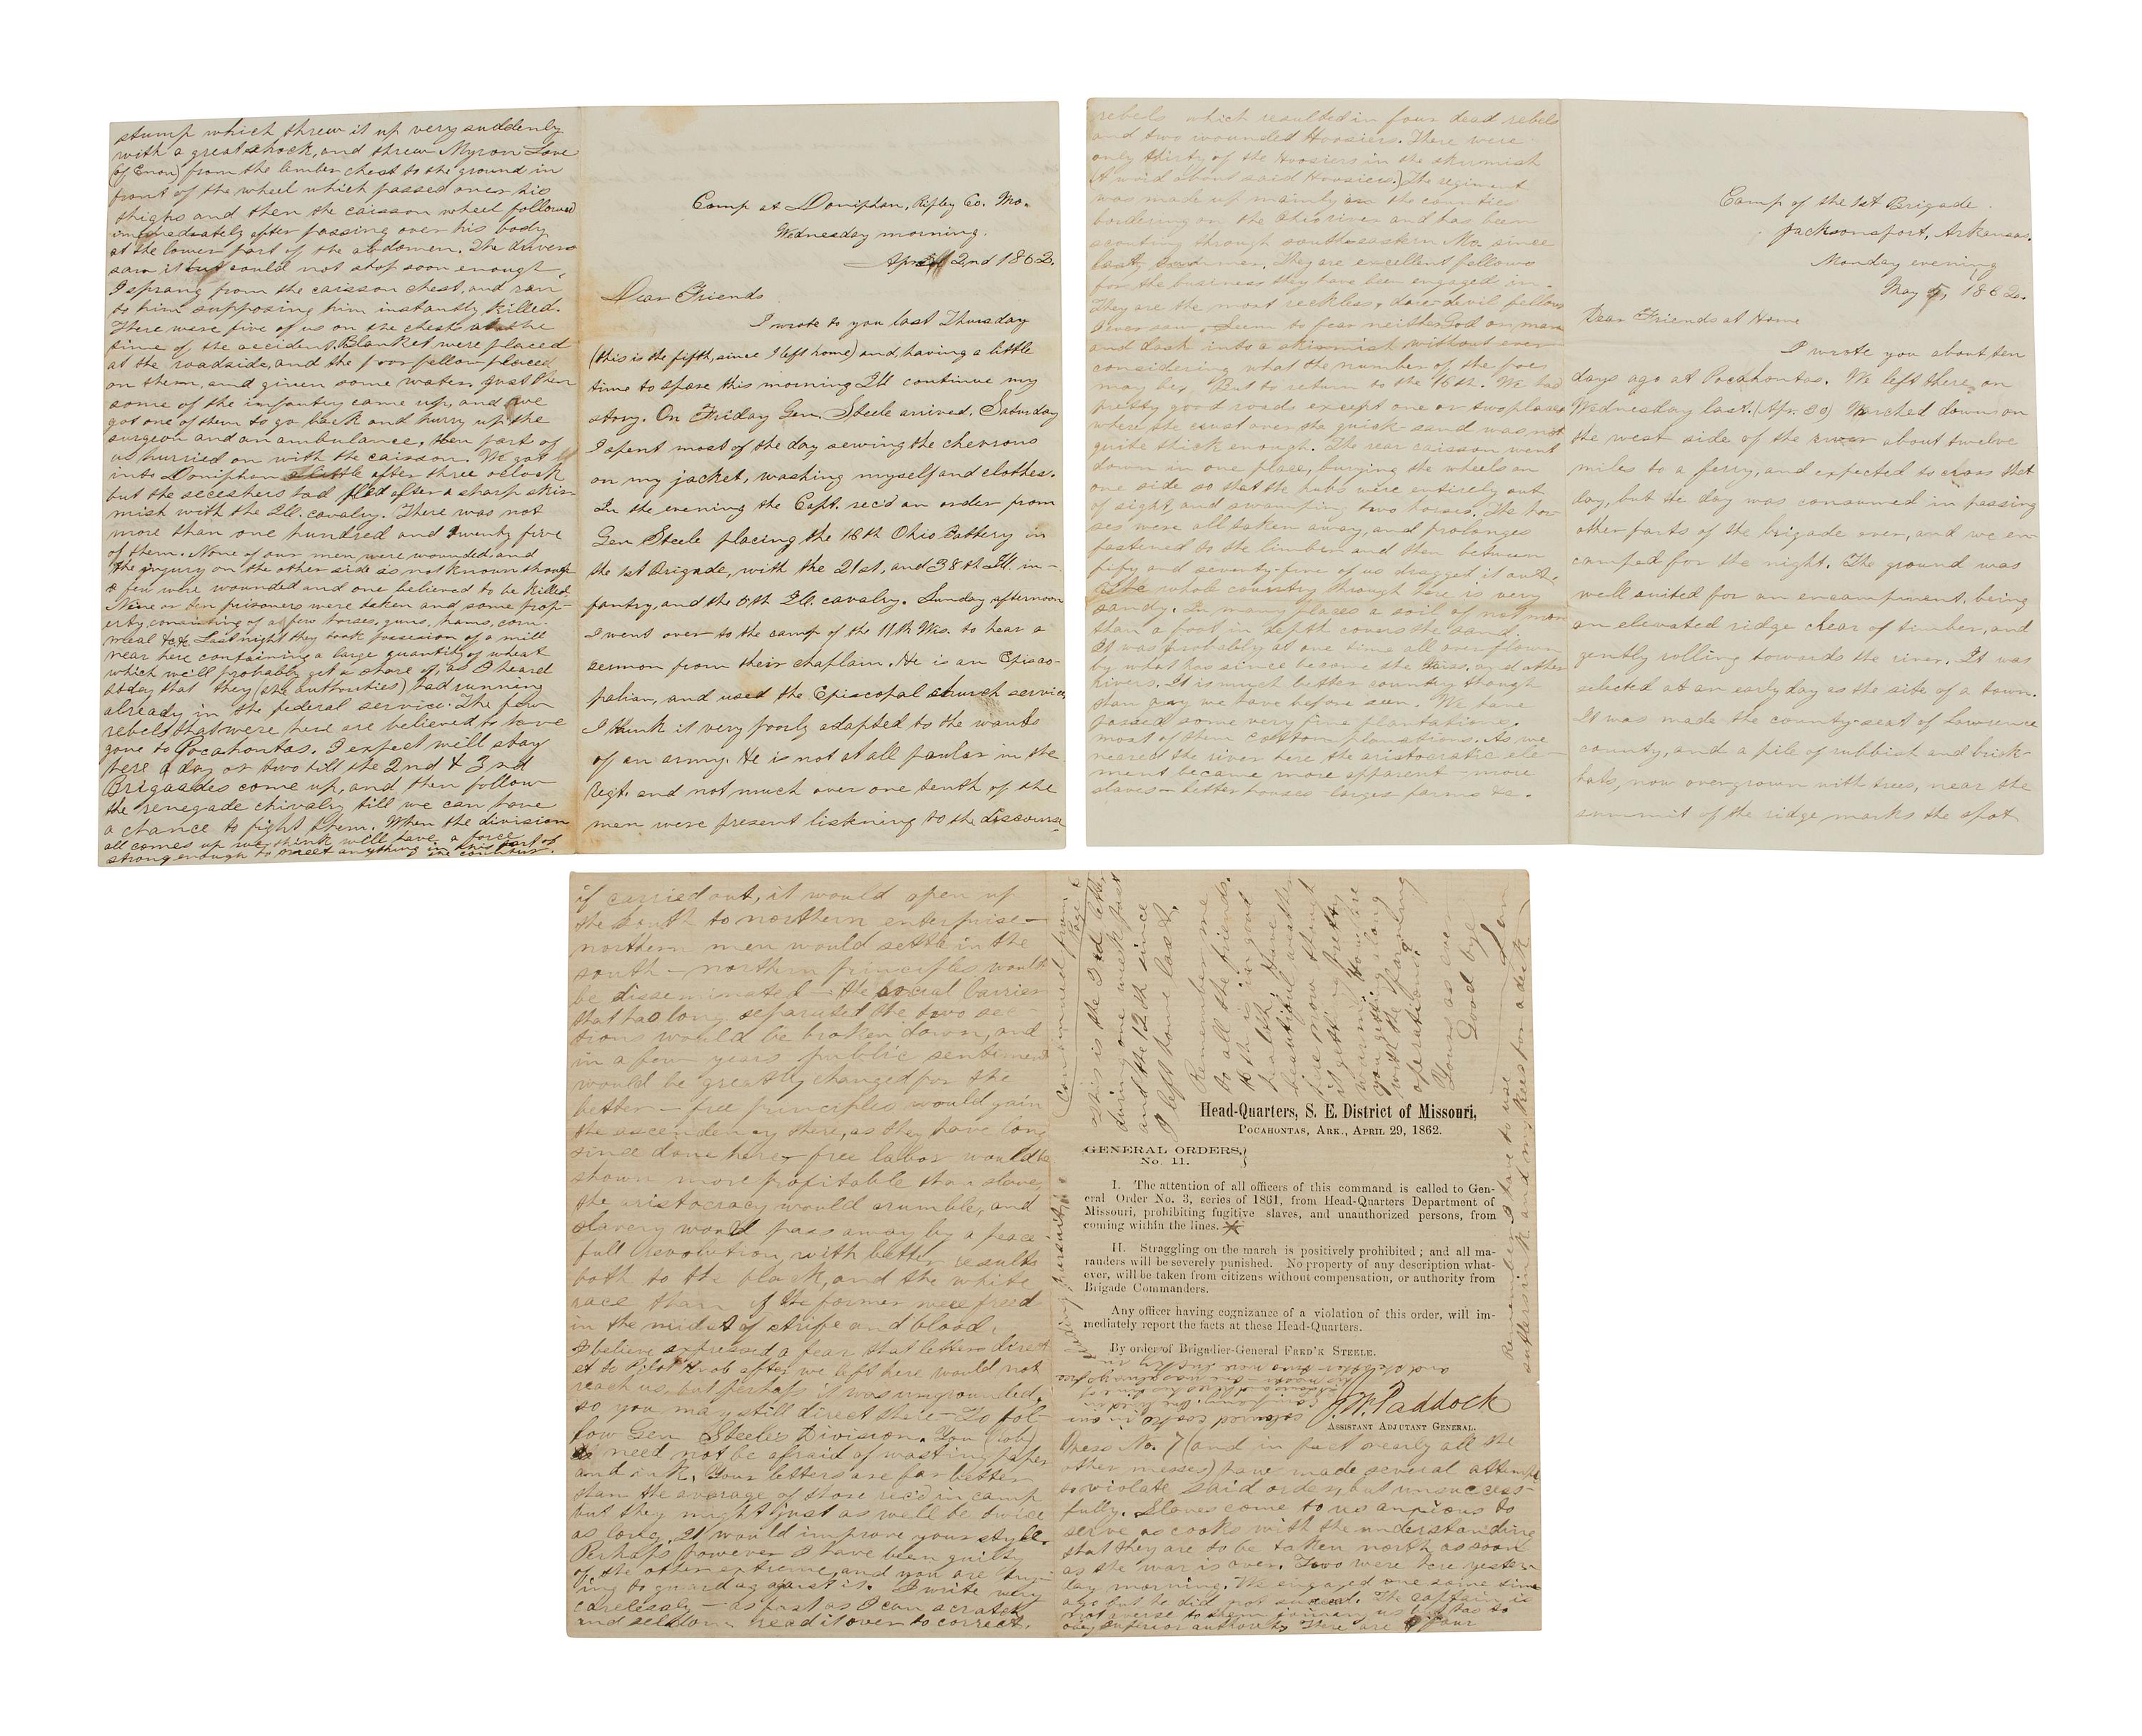 stump which threw it up very suddenly
with a great shock, and threw Myron Love
(of Enon) from the limber chest to the ground in
front of the wheel which passed over his
thighs and then the caisson wheel followed
immediately after passing over his body
at the lower part of the abdomen. The drivers
saw it but could not stop soon enough,
I sprang from the caisson chest, and ran
to him supposing him instantly killed.
There were five of us on the chest at the
time of the accident. Blankets were placed
at the roadside, and the poor fellow placed
on them, and given some water. Just then
some of the infantry came up, and we
got one of them to go back and hurry up the
surgeon and an ambulance, then part of
us hurried on with the caisson. We got
into Doniphan a little after three oclock
but the seceshers had fled after a sharp skir
mish with the Ill. cavalry. There was not
more than one hundred and twenty five
of them. None of our men were wounded and
the injury on the other side is not known though
a few were wounded and one believed to be killed.
Nine or ten prisoners were taken and some prop-
erty, consisting of a few horses, guns, hams, corn-
meal &c&c. Last night they took possession of a mill
near here containing a large quantity of wheat
which we'll probably get a share of, as I heard
today that they (the authorities) had running
already in the federal service. The few
rebels that were here are believed to have
gone to Pocahontas. I expect will stay
here a day or two till the 2nd & 3rd
Brigades come up, and then follow
the renegade chivalry till we can have
a chance to fight them. When the division
all comes up we think we'll have a force
strong enough to meet anything in this part of
the continent.
Camp at Doniphan, Ripley Co. Mo.
Wednesday morning.
April 2nd 1862.
Dear Friends
I wrote to you last Thursday
(this is the fifth, since I left home) and, having a little
time to spare this morning Ill continue my
story. On Friday Gen. Steele arrived. Saturday
I spent most of the day sewing the chevrons
on my jacket, washing myself and clothes.
In the evening the Capt. rec'd an order from
Gen Steele placing the 16th Ohio Battery in
the 1st Brigade, with the 21st, and 38th Ill. in-
fantry, and the 5th Ill. cavalry. Sunday afternoon
I went over to the camp of the 11th Wis. to hear a
sermon from their chaplain. He is an Episco-
palian, and used the Episcopal church service
I think it very poorly adapted to the wants
of an army. He is not at all poular in the
Regt. and not much over one tenth of the
men were present listening to the discourse
rebels which resulted in four dead rebels
and two wounded Hoosiers. There were
only thirty of the Hoosiers in the skirmish
(A word about said Hoosiers.) The regiment
was made up mainly in the counties
bordering on the Ohio river and has been
scouting through southeastern Mo. since
last summer. They are excellent fellows
for the business they have been engaged in.
They are the most reckless, dare-devil fellows
I ever saw. Seem to fear neither God or man
and dash into a skirmish without ever
considering what the number of the foes
may be. But to return to the 16th. We had
pretty good roads except one or two places
where the crust over the quick-sand was not
quite thick enough. The rear caisson went
down in one place, burying the wheels on
one side so that the hubs were entirely out
of sight, and swamping two horses. The hor-
ses were all taken away, and prolonges
fastened to the limber and then between
fifty and seventy-five of us dragged it out.
The whole country through here is very
sandy. In many places a soil of not more
than a foot in depth covers the sand.
It was probably at one time all overflown
by what has since become the Miss. and other
rivers. It is much better country though
than any we have before seen. We have
passed some very fine plantations,
most of them cotton plantations. As we
neared the river here the aristocratic ele-
ment became more apparent – more
slaves – better houses – larger farms &c.
Camp of the 1st Brigade.
Jacksonport, Arkansas.
Monday evening
May 5, 1862.
Dear Friends at Home
I wrote you about ten
days ago at Pocahontas. We left there on
Wednesday last. (Apr. 30) Marched down on
the west side of the river about twelve
miles to a ferry, and expected to cross that
day, but the day was consumed in passing
other parts of the brigade over, and we en-
camped for the night. The ground was
well suited for an encampment, being
an elevated ridge clear of timber, and
gently rolling towards the river. It was
selected at an early day as the site of a town.
It was made the county-seat of Lawrence
county, and a pile of rubbish and brick-
bats, now overgrown with trees, near the
summit of the ridge marks the spot
if carried out, it would open up
the South to northern enterprise –
northern men would settle in the
south – northern principles would
be disseminated – the social barrier
that has long separated the two sec-
tions would be broken down, and
in a few years public sentiment
would be greatly changed for the
better – free principles would gain
the ascendency there, as they have long
since done here – free labor would be
shown more profitable than slave,
the aristocracy would crumble, and
slavery would pass away by a peace-
full revolution, with better results
both to the black, and the white
race than if the former were freed
in the midst of strife and blood.
I believe I expressed a fear that letters direct-
ed to Pilot Knob after we left here would not
reach us, but perhaps it was ungrounded,
so you may still direct there – To fol-
low Gen Steele's Division. You (Rob)
need not be afraid of wasting paper
and ink. Your letters are far better
than the average of those rec'd in camp
but they might just as well be twice
as long. It would improve your style.
Perhaps however I have been guilty
of the other extreme, and you are try-
ing to guard against it. I write very
carelessly – as fast as I can scratch
and seldom read it over to correct.
(Continued from
Page
This is the 3rd letter
during one week past
and the 12th since
I left home last.
Remember me
to all the friends.
is in good
health. Have
beautiful weather
here now though
it getting pretty
warm. How are
you getting along
with the farming
operations?
Yours as ever
Good bye
Lon
Remember I have to use
sutlers ink and my knees for a desk
Head-Quarters, S. E. District of Missouri,
Pocahontas, Ark., April 29, 1862.
GENERAL ORDERS,
No. 11.
I. The attention of all officers of this command is called to Gen-
eral Order No. 3, series of 1861, from Head-Quarters Department of
Missouri, prohibiting fugitive slaves, and unauthorized persons, from
coming within the lines. *
II. Straggling on the march is positively prohibited; and all ma-
randers will be severely punished. No property of any description what-
ever, will be taken from citizens without compensation, or authority from
Brigade Commanders.
Any officer having cognizance of a violation of this order, will im-
mediately report the facts at these Head-Quarters.
By order of Brigadier-General Fred'k Steele.
J. W. Paddock
Assistant Adjutant General.
colored cooks in our
Mess No. 7 (and in fact nearly all the
other messes) have made several attempts
to violate said order, but unsuccess-
fully. Slaves come to us anxious to
serve as cooks with the understanding
that they are to be taken north as soon
as the war is over. Two were here yester-
day morning. We engaged one some time
ago but he did not succeed. The captain is
not averse to them joining us but has to
obey superior authority. There are four